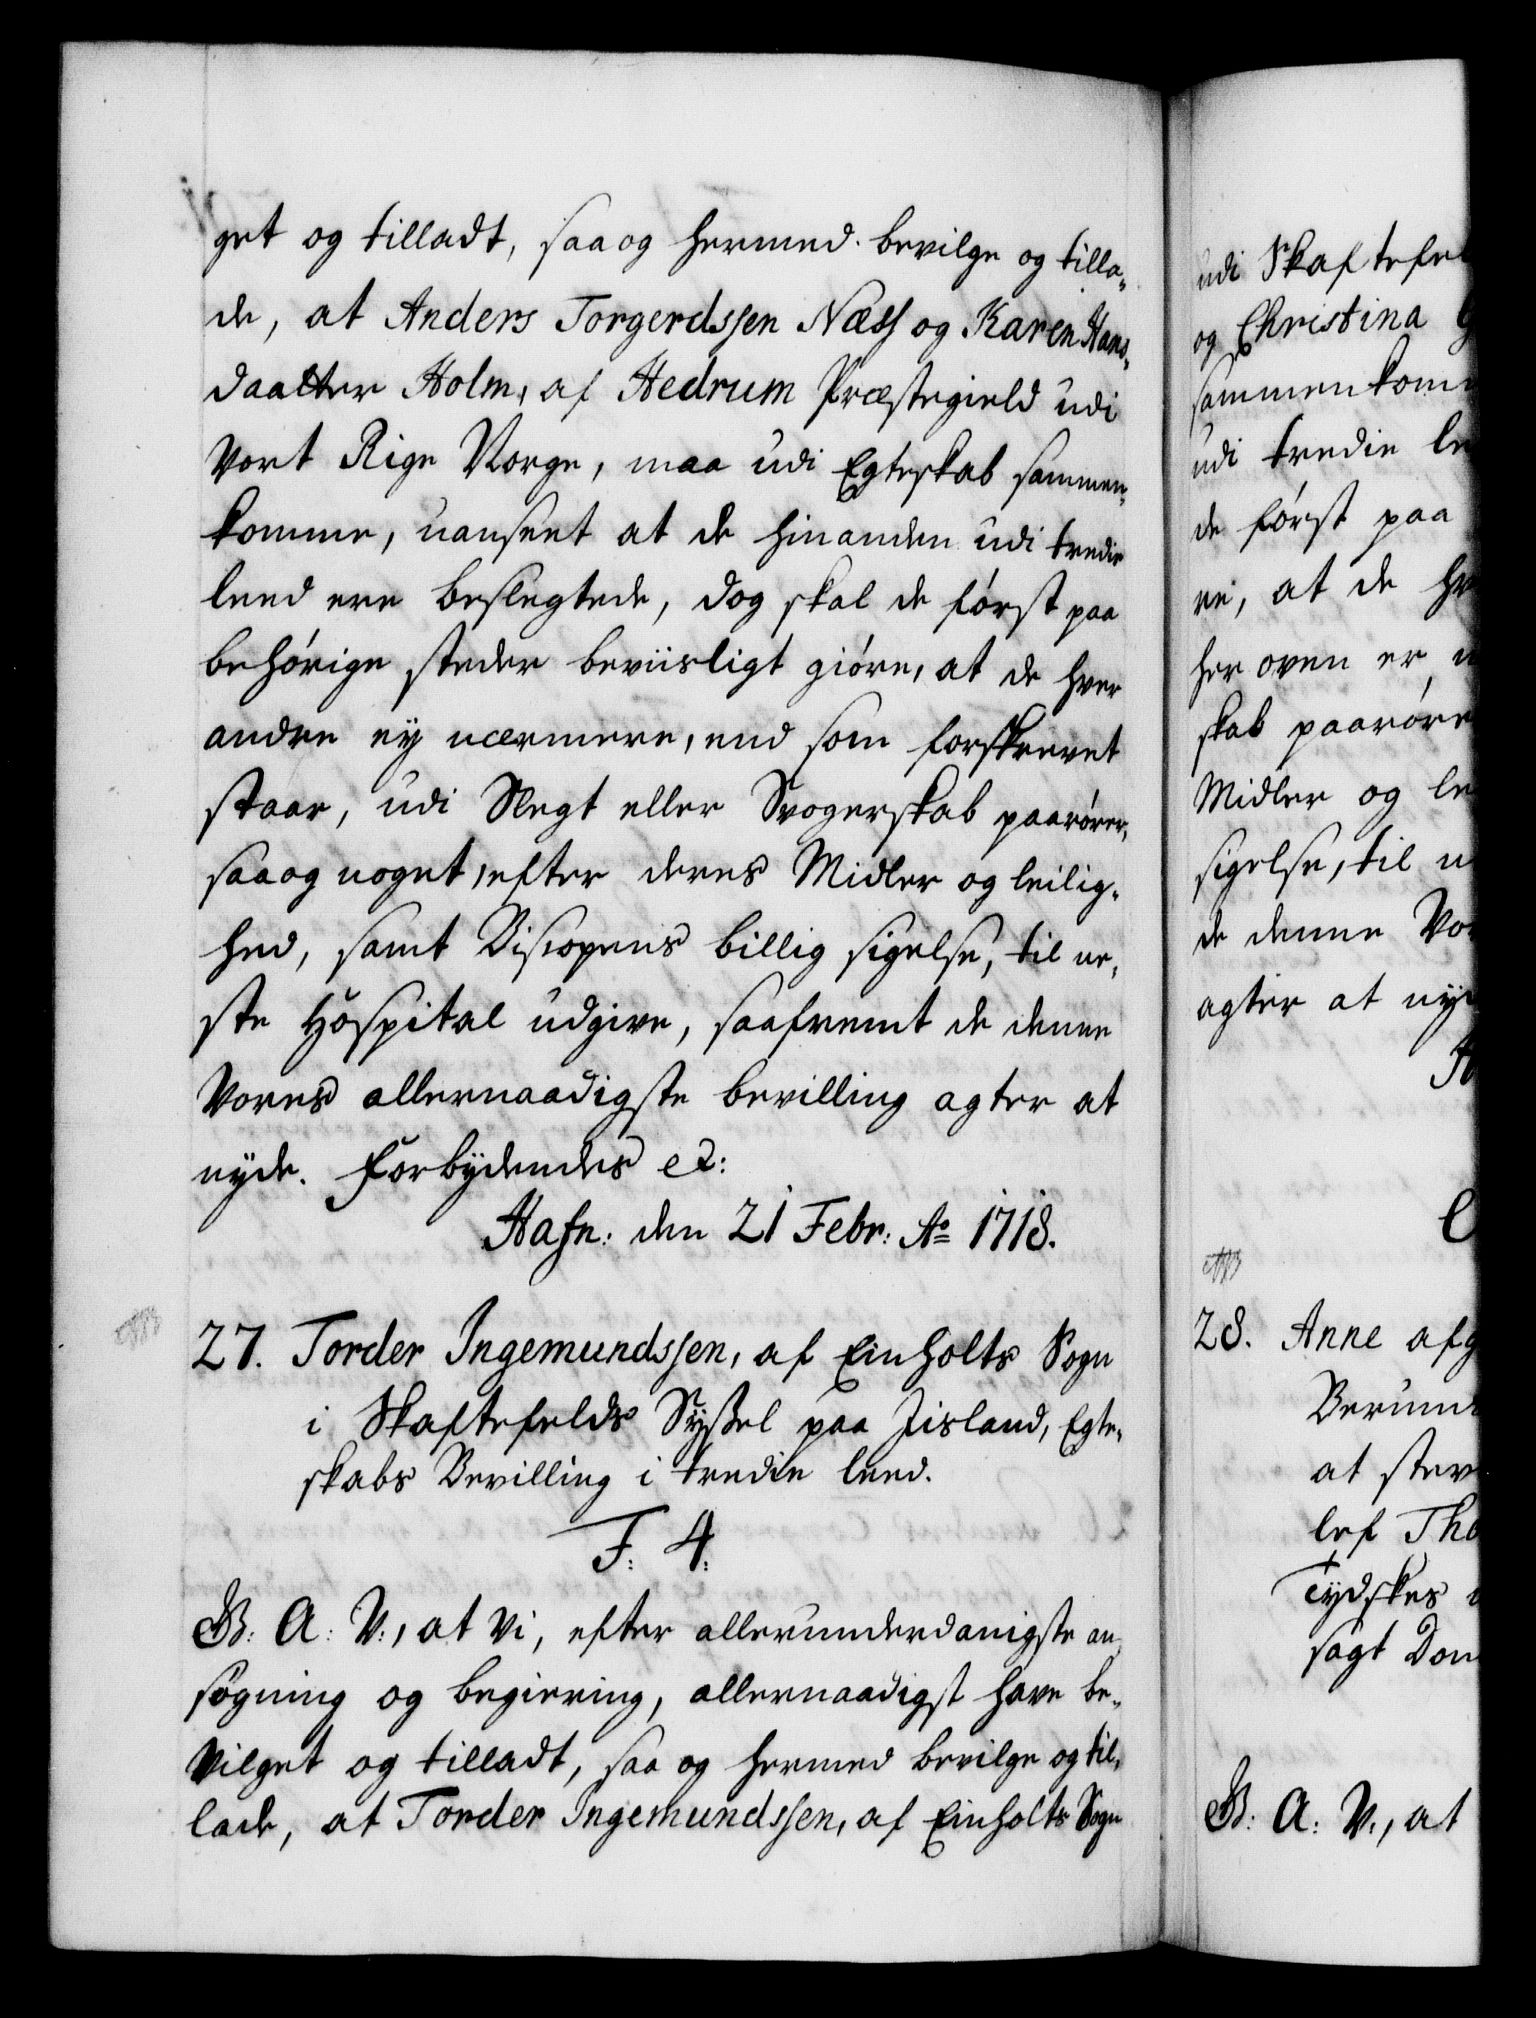 get og tilladt, saa og hermed bevilge og tilla-
de, at Anders Torgerdssen Næss og Karen Hans-
daatter Holm, af Hedrum Præstegield udi
Vort Rige Norge, maa udi Egteskab sammen-
komme, uanseet at de hinanden udi tredie
leed ere beslegtede, dog skal de først paa
behørige steder beviisligt giøre, at de hver
andre ey nærmere, end som forskrevet
staar, udi Slegt eller Svogerskab paarører,
saa og noget, efter deres Midler og leilig-
hed, samt Biscopens billig sigelse, til ne-
ste Hospital udgive, saafremt de denne
Vores allernaadigste bevilling agter at
nyde. Forbydendes etc:
Hafn: den 21 Febr: Ao 1718.
27. Torder Ingemundssen, af Einholts Sogn
i Skaftefelds Syssel paa Iisland, Egte-
skabs Bevilling i tredie leed.
F: 4.
G: A: V:, at Vi, efter allerunderdanigste an-
søgning og begiering, allernaadigst have be-
vilget og tilladt, saa og hermed bevilge og til-
lade, at Torder Ingemundssen, af Einholts Sogn
udi Skaftefel
og Christina
sammenkom
udi tredie le
de først paa
re, at de hv
her oven er
skab paarøre
Midler og le
sigelse, til n
de denne Vor
agter at ny
28. Anne afg
Berund
at stev
lef Tho
Tydskes
sagt Dom
G: A: V:, at